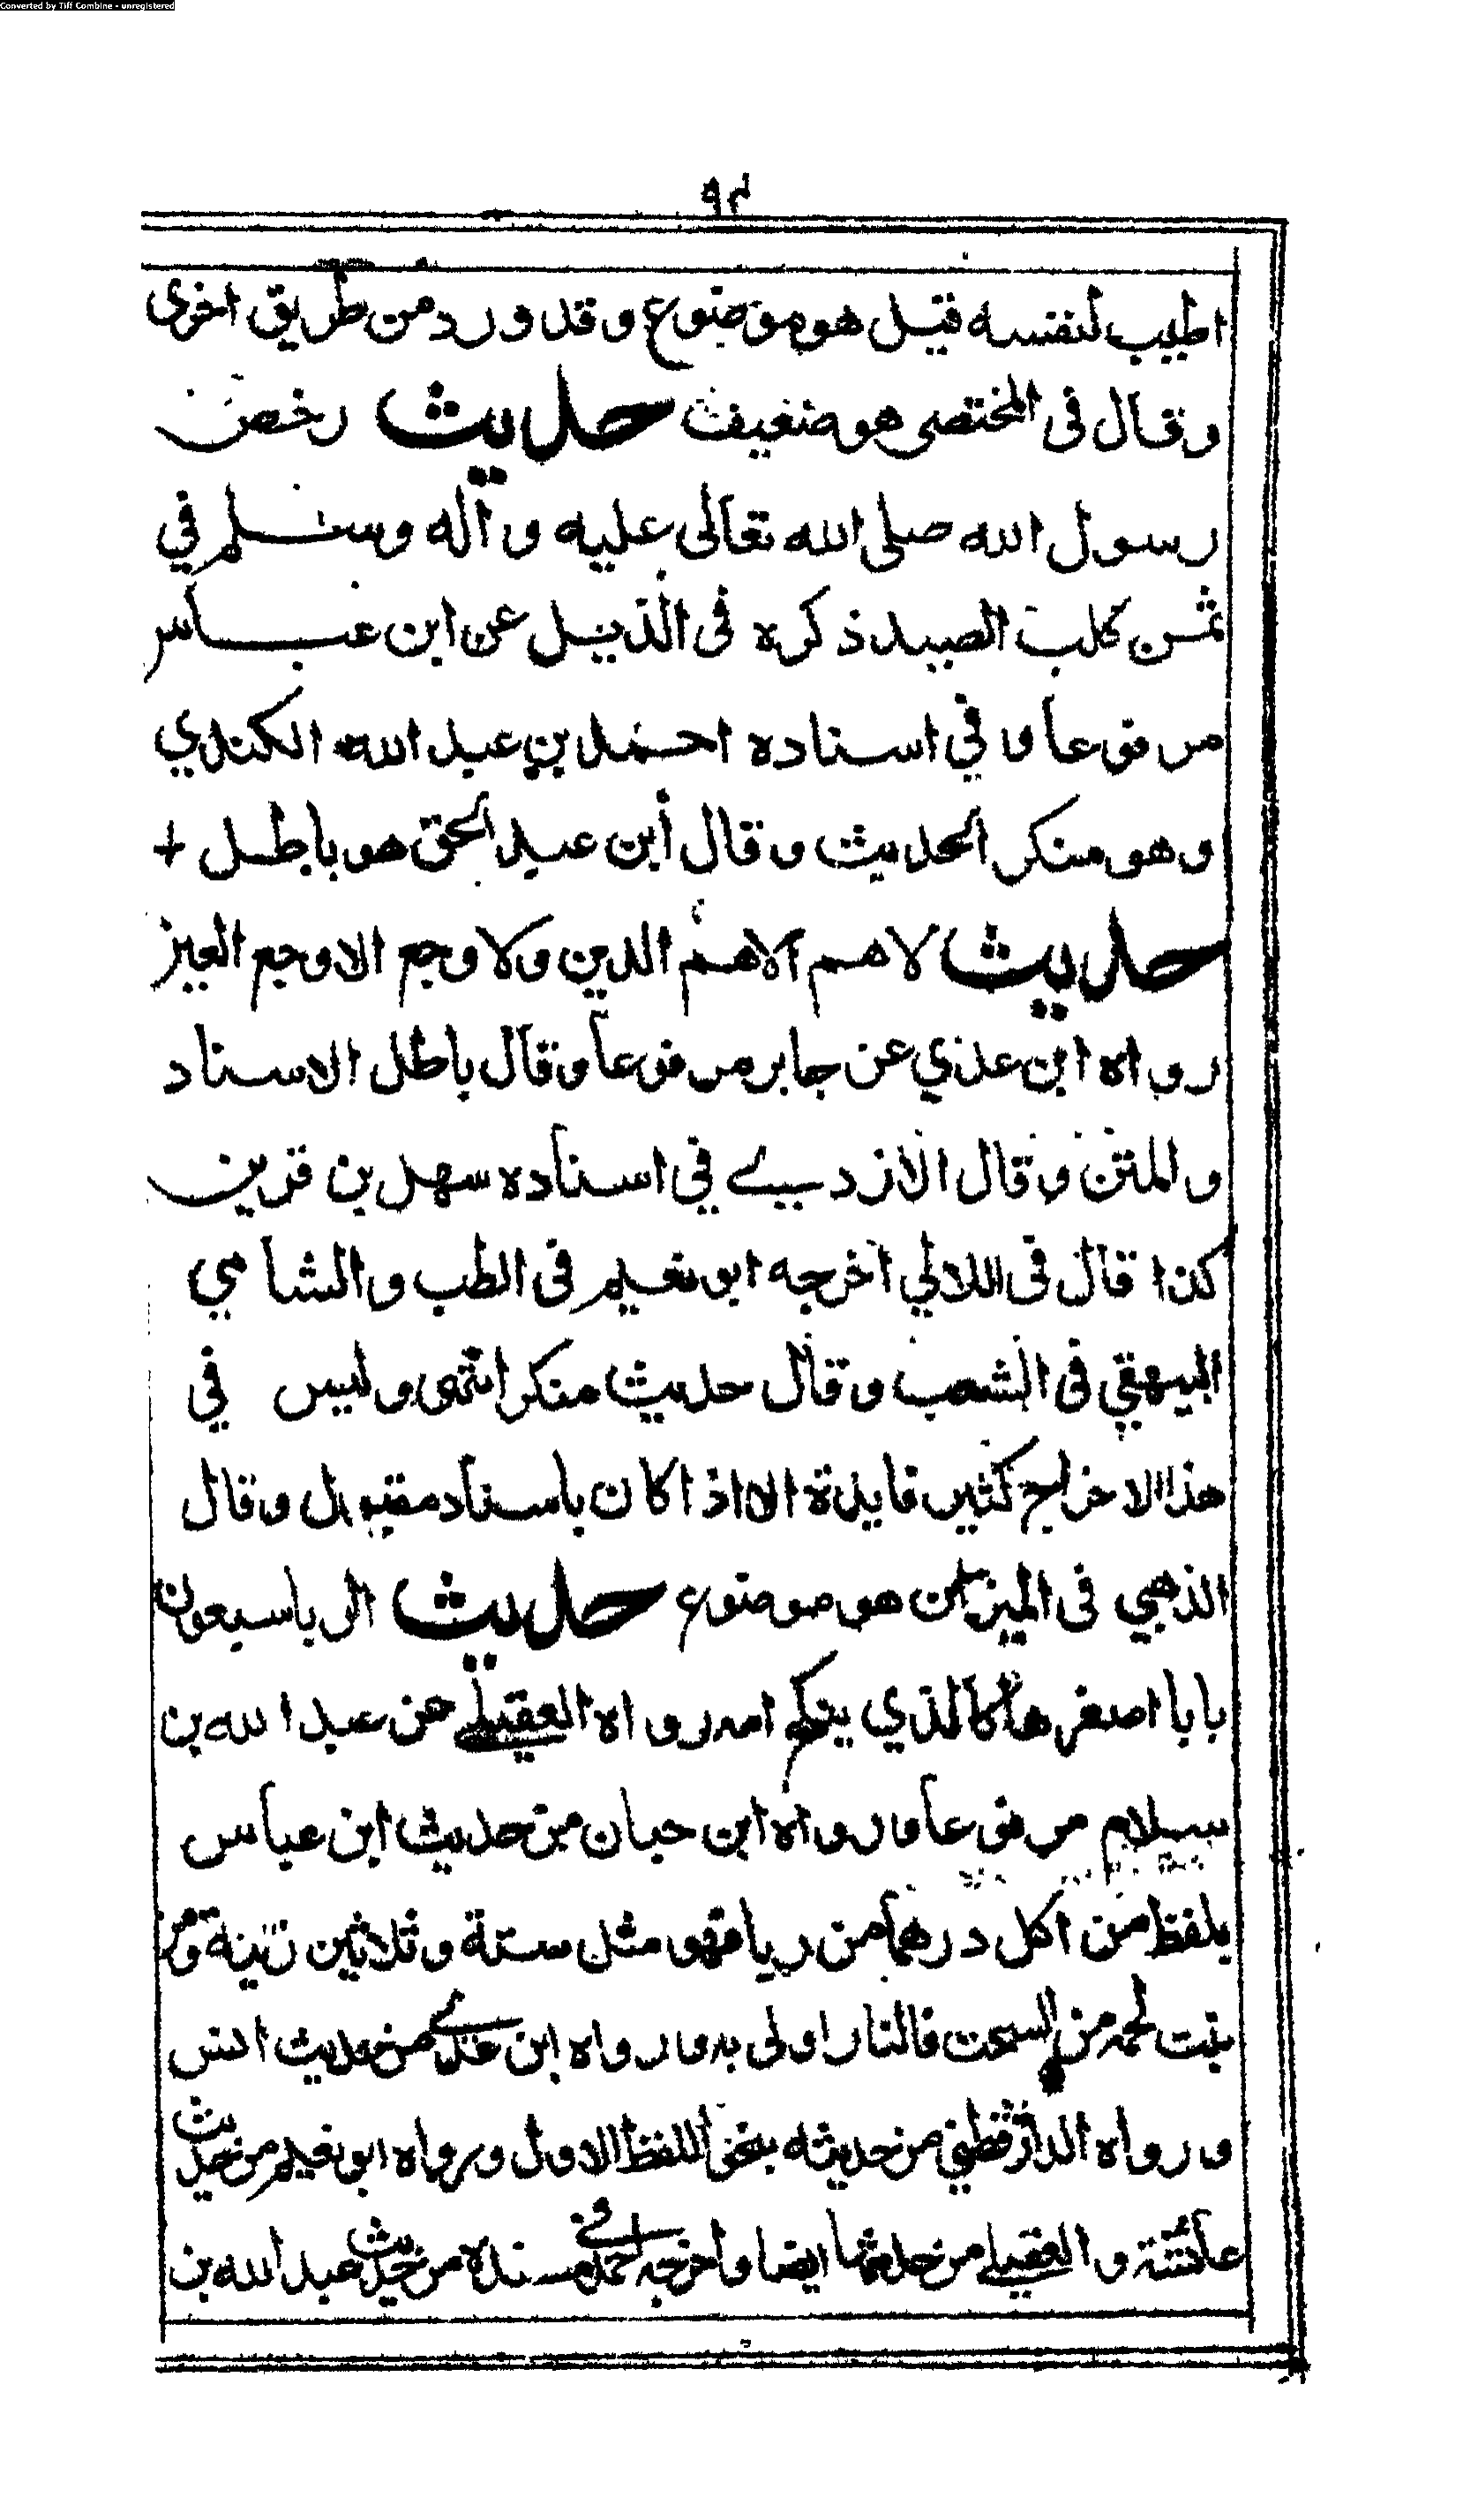 Converted by Tiff Combine - unregistered
٩٢
اطيب لنفسه قيل هو موضوع وقد ورد من طريق اخرى
وقال فى المختصر هو ضعيف حديث رخص
رسول الله صلى الله تعالى عليه وآله وسلم في
ثمن كلب الصيد ذكره فى الذيل عن ابن عباس
مرفوعا وفي اسناده احمد بن عبد الله الكندي
وهو منكر الحديث وقال ابن عبد الحق هو باطل +
حديث لا هم الا هم الدين ولا وجع الا وجع العين
رواه ابن عدي عن جابر مرفوعا وقال باطل الاسناد
والمتن وقال الازدي في اسناده سهل بن قرين
كذا قال فى اللالي اخرجه ابو نعيم فى الطب والشامي
البيهقي فى الشعب وقال حديث منكر انتهى وليس في
هذا الاخراج كثير فايدة الا اذا كان باسناد مقبول وقال
الذهبي فى الميزان هو موضوع حديث الربا سبعون
بابا اصغرها كالذي ينكح امه رواه العقيلي عن عبد الله بن
سلام مرفوعا ورواه ابن حبان من حديث ابن عباس
بلفظ من اكل درهما من ربا فهو مثل ستة وثلاثين زنية ومن
نبت لحمه من السحت فالنار اولى به ورواه ابن عدي من حديث انس
ورواه الدارقطني من حديثه بنحو اللفظ الاول ورواه ابو نعيم من حديث
عائشة والعقيلي من حديثها ايضا واخرجه احمد في مسنده من حديث عبد الله بن